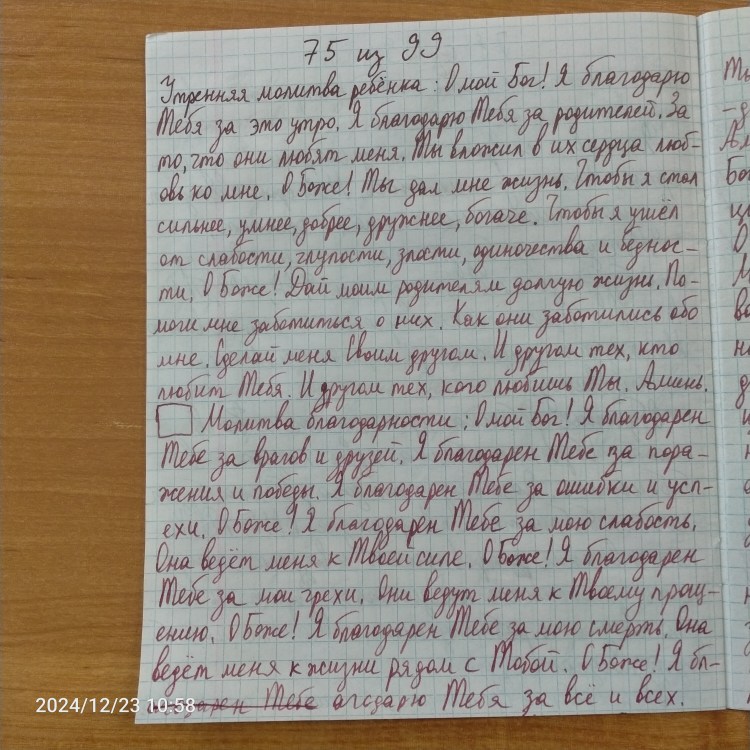 75 из 99
Утренняя молитва ребёнка: О мой Бог! Я благодарю
Тебя за это утро. Я благодарю Тебя за родителей. За
то, что они любят меня. Ты вложил в их сердца люб-
овь ко мне. О Боже! Ты дал мне жизнь. Чтобы я стал
сильнее, умнее, добрее, дружнее, богаче. Чтобы я ушёл
от слабости, глупости, злости, одиночества и беднос-
ти. О Боже! Дай моим родителям долгую жизнь. По-
моги мне заботиться о них. Как они заботились обо
мне. Сделай меня Своим другом. И другом тех, кто
любит Тебя. И другом тех, кого любишь Ты. Аминь.
Молитва благодарности: О мой Бог! Я благодарен
Тебе за врагов и друзей. Я благодарен Тебе за пора-
жения и победы. Я благодарен Тебе за ошибки и усп-
ехи. О Боже! Я благодарен Тебе за мою слабость.
Она ведёт меня к Твоей силе. О Боже! Я благодарен
Тебе за мои грехи. Они ведут меня к Твоему прощ-
ению. О Боже! Я благодарен Тебе за мою смерть. Она
ведёт меня к жизни рядом с Тобой. О Боже! Я бл-
агодарю Тебя за всё и всех.
2024/12/23 10:58